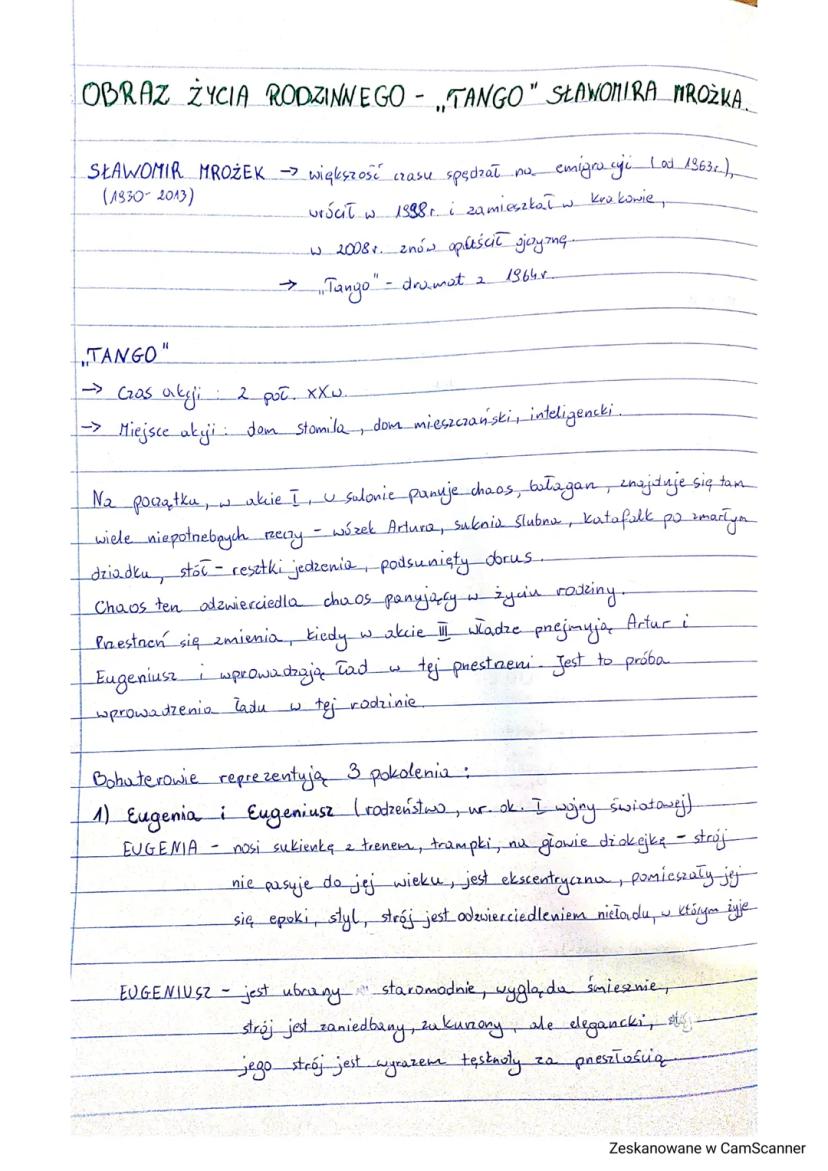 OBRAZ ŻYCIA RODZINNEGO - „TANGO" SŁAWOMIRA MROŻKA.
SŁAWOMIR MROŻEK → większość czasu spędzał na emigracji (od 1963r.),
(1930-2013)
wrócił w 1998r. i zamieszkał w Krakowie,
w 2008r. znów opuścił ojczyznę.
→ „Tango" - dramat z 1964r.
„TANGO"
→ Czas akcji : 2 poł. XXw.
→ Miejsce akcji : dom Stomila, dom mieszczański, inteligencki.
Na początku, w akcie I, w salonie panuje chaos, bałagan, znajduje się tam
wiele niepotrzebnych rzeczy - wózek Artura, suknia ślubna, katafalk po zmarłym
dziadku, stół - resztki jedzenia, podsunięty obrus.
Chaos ten odzwierciedla chaos panujący w życiu rodziny.
Przestrzeń się zmienia, kiedy w akcie III władze przejmują Artur i
Eugeniusz i wprowadzają ład w tej przestrzeni. Jest to próba
wprowadzenia ładu w tej rodzinie.
Bohaterowie reprezentują 3 pokolenia :
1) Eugenia i Eugeniusz (rodzeństwo, ur. ok. I wojny światowej)
EUGENIA - nosi sukienkę z trenem, trampki, na głowie dżokejkę - strój
nie pasuje do jej wieku, jest ekscentryczna, pomieszały jej
się epoki, styl, strój jest odzwierciedleniem nieładu, w którym żyje
EUGENIUSZ - jest ubrany staromodnie, wygląda śmiesznie,
strój jest zaniedbany, zakurzony, ale elegancki,
jego strój jest wyrazem tęsknoty za przeszłością.
Zeskanowane w CamScanner